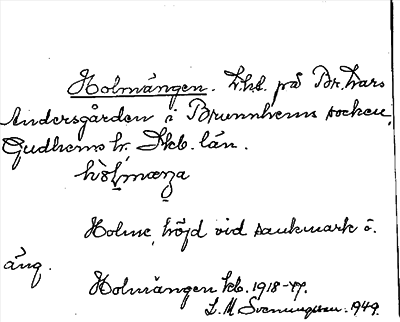 Holmängen. Lhl. på Br. Lars
Andersgården i Brunnhems socken,
Gudhems hr. Skb. län.
Holme, höjd vid sankmark o.
äng.
Holmängen kb. 1918-47.
L. M. Svenungsson. 1949.